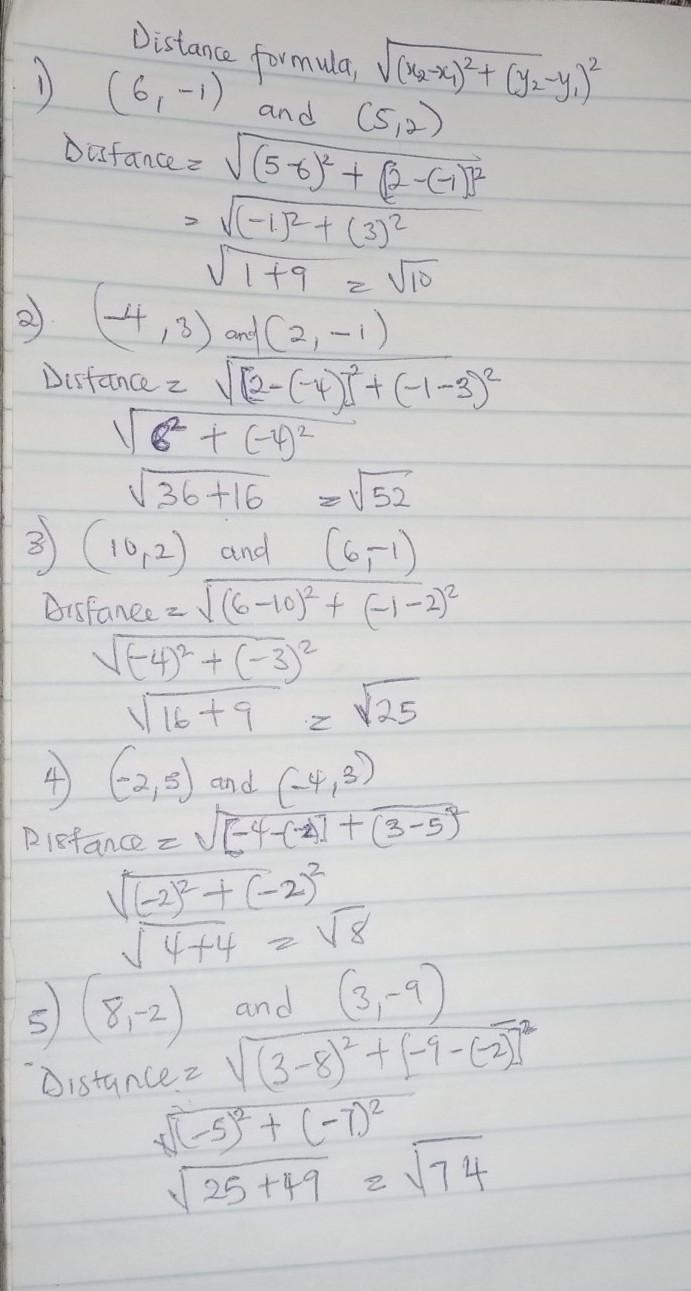 Distance formula, √(x₂-x₁)² + (y₂-y₁)²
1) (6, -1) and (5,2)
Distance = √(5-6)² + [2-(-1)]²
= √(-1)² + (3)²
√1+9 = √10
2) (-4, 3) and (2, -1)
Distance = √[2-(-4)]² + (-1-3)²
√6² + (-4)²
√36+16 = √52
3) (10,2) and (6,-1)
Distance = √(6-10)² + (-1-2)²
√(-4)² + (-3)²
√16+9 = √25
4) (-2,5) and (-4,3)
Distance = √[-4-(-2)] + (3-5)²
√(-2)² + (-2)²
√4+4 = √8
5) (8,-2) and (3,-9)
Distance = √(3-8)² + [-9-(-2)]²
√(-5)² + (-7)²
√25+49 = √74